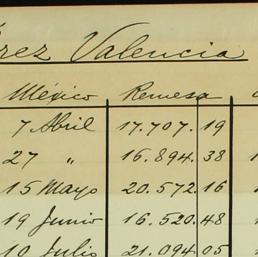 rez Valencia
México Remesa
7 Abril 17.707.19
27 " 16.894.38
15 Mayo 20.572 16
19 Junio 16.520.48
10 Julio 21.094 05